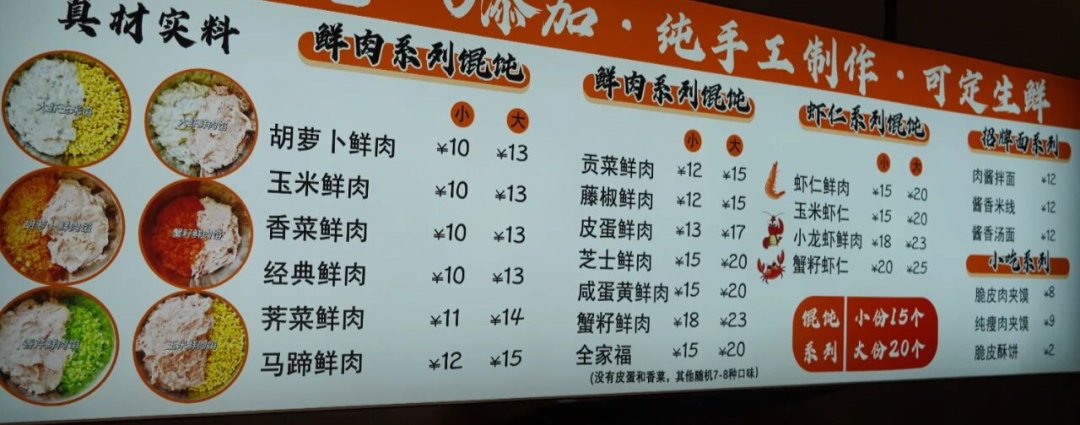 添加·纯手工制作·可定生鲜
真材实料
大虾玉米馅
大虾鲜肉馅
胡萝卜鲜肉馅
蟹籽鲜肉馅
香芹鲜肉馅
玉米鲜肉馅
鲜肉系列馄饨
小 大
胡萝卜鲜肉 ¥10 ¥13
玉米鲜肉 ¥10 ¥13
香菜鲜肉 ¥10 ¥13
经典鲜肉 ¥10 ¥13
荠菜鲜肉 ¥11 ¥14
马蹄鲜肉 ¥12 ¥15
鲜肉系列馄饨
小 大
贡菜鲜肉 ¥12 ¥15
藤椒鲜肉 ¥12 ¥15
皮蛋鲜肉 ¥13 ¥17
芝士鲜肉 ¥15 ¥20
咸蛋黄鲜肉 ¥15 ¥20
蟹籽鲜肉 ¥18 ¥23
全家福 ¥15 ¥20
(没有皮蛋和香菜，其他随机7-8种口味)
虾仁系列馄饨
小 大
虾仁鲜肉 ¥15 ¥20
玉米虾仁 ¥15 ¥20
小龙虾鲜肉 ¥18 ¥23
蟹籽虾仁 ¥20 ¥25
馄饨系列
小份15个
大份20个
招牌面系列
肉酱拌面 ¥12
酱香米线 ¥12
酱香汤面 ¥12
小吃系列
脆皮肉夹馍 ¥8
纯瘦肉夹馍 ¥9
脆皮酥饼 ¥2